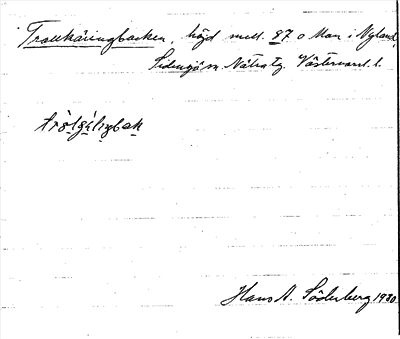 Trollkäringbacken, höjd mell. 87 o Mon i Nyland,
Sidensjö sn. Nätra tg. Västernorrl. l.
Hans A. Söderberg 1930